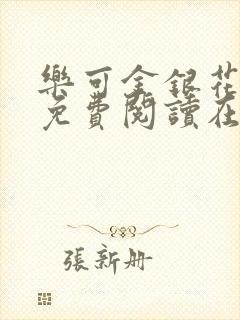 樂可金銀花
免費閱讀在
張新册